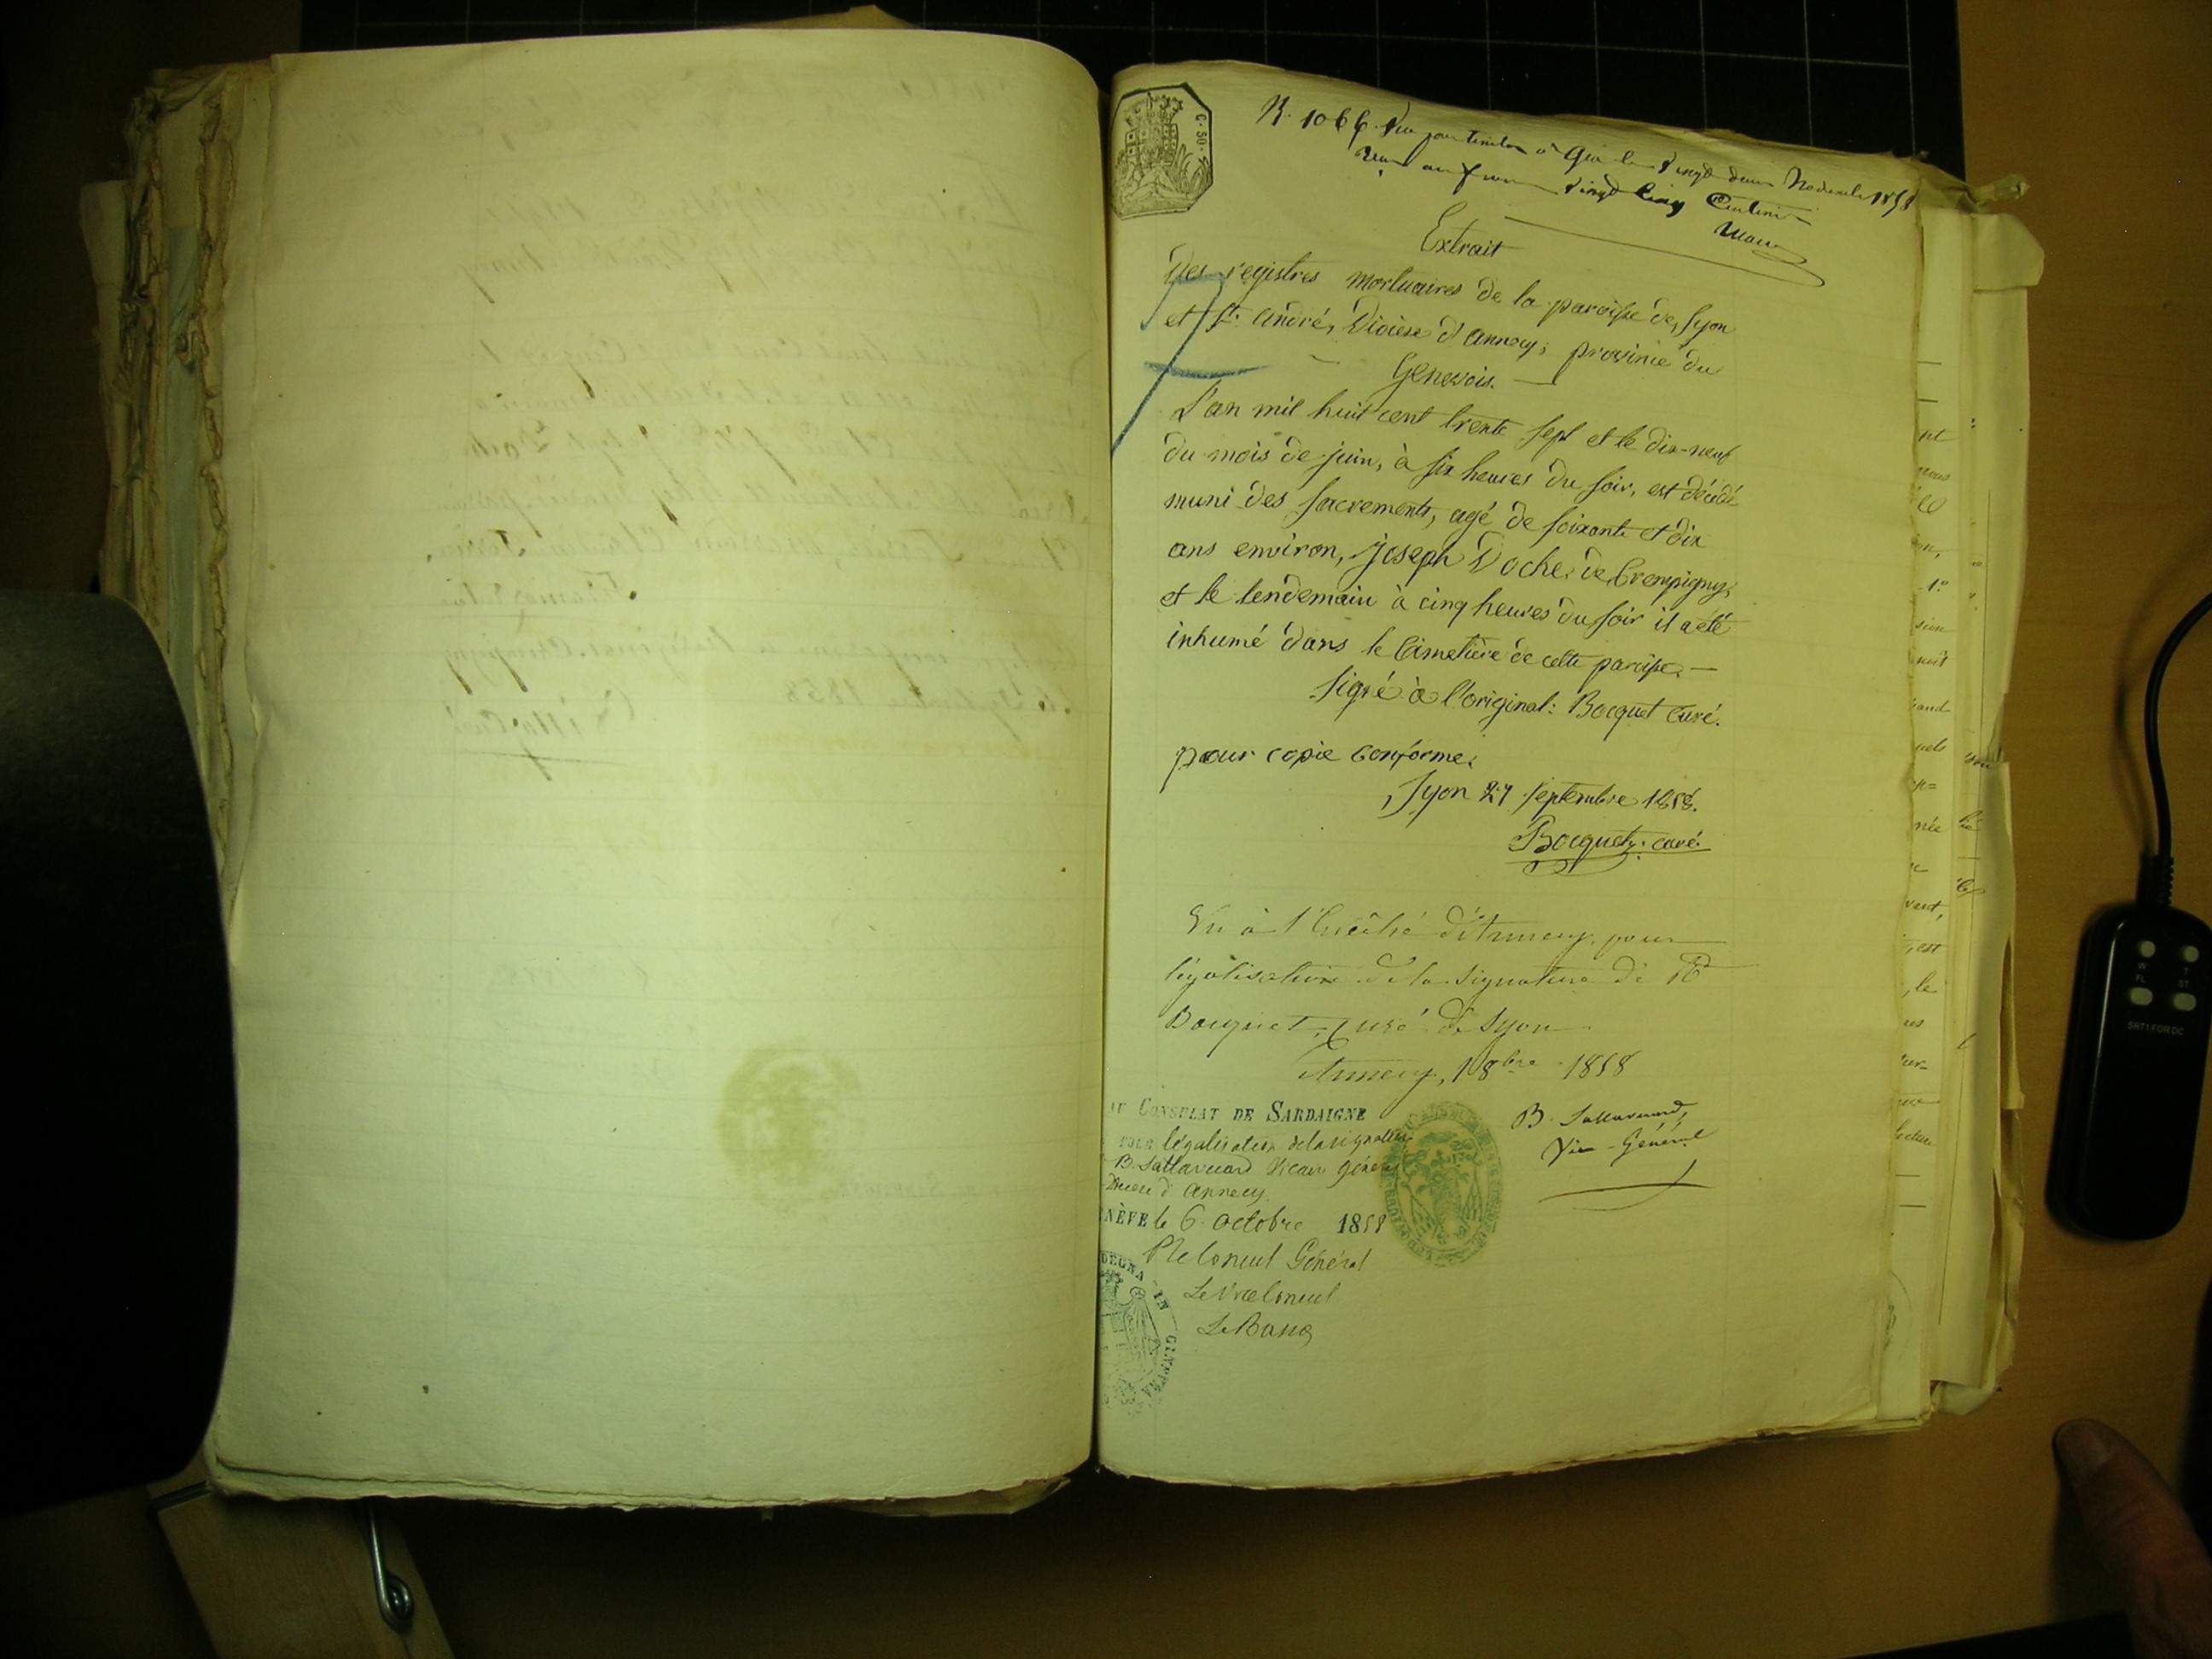 C. 50.
N. 1066. Vu pour timbre à Gex le vingt deux Novembre 1858
Reçu un franc vingt cinq Centimes
Extrait
Des registres mortuaires de la paroisse de Syon
et St. André, Diocèse d'annecy; province du
Genevois. —
L'an mil huit cent trente sept et le dix-neuf
du mois de juin, à six heures du soir, est décédé
muni des sacrements, agé de soixante et dix
ans environ, joseph Doche de Crempigny,
et le lendemain à cinq heures du soir il a été
inhumé dans le Cimetière de cette paroisse. —
signé à l'original: Bocquet curé.
pour copie conforme.
Syon 27 septembre 1858.
Bocquet, curé.
Vu à l'Evêché d'Annecy, pour
légalisation de la signature de Rd
Bocquet, Curé de Syon.
Annecy, 1 8bre 1858
B.
Vic-Général
AU CONSULAT DE SARDAIGNE
POUR légalisation de la signature
B. Vicaire général
Diocèse d'annecy.
NÈVE le 6 octobre 1858
Pr le Consul Général
Le Vice Consul
DEGNA IN GINEVRA
W
FL
T
ST
SRT1 FOR DC